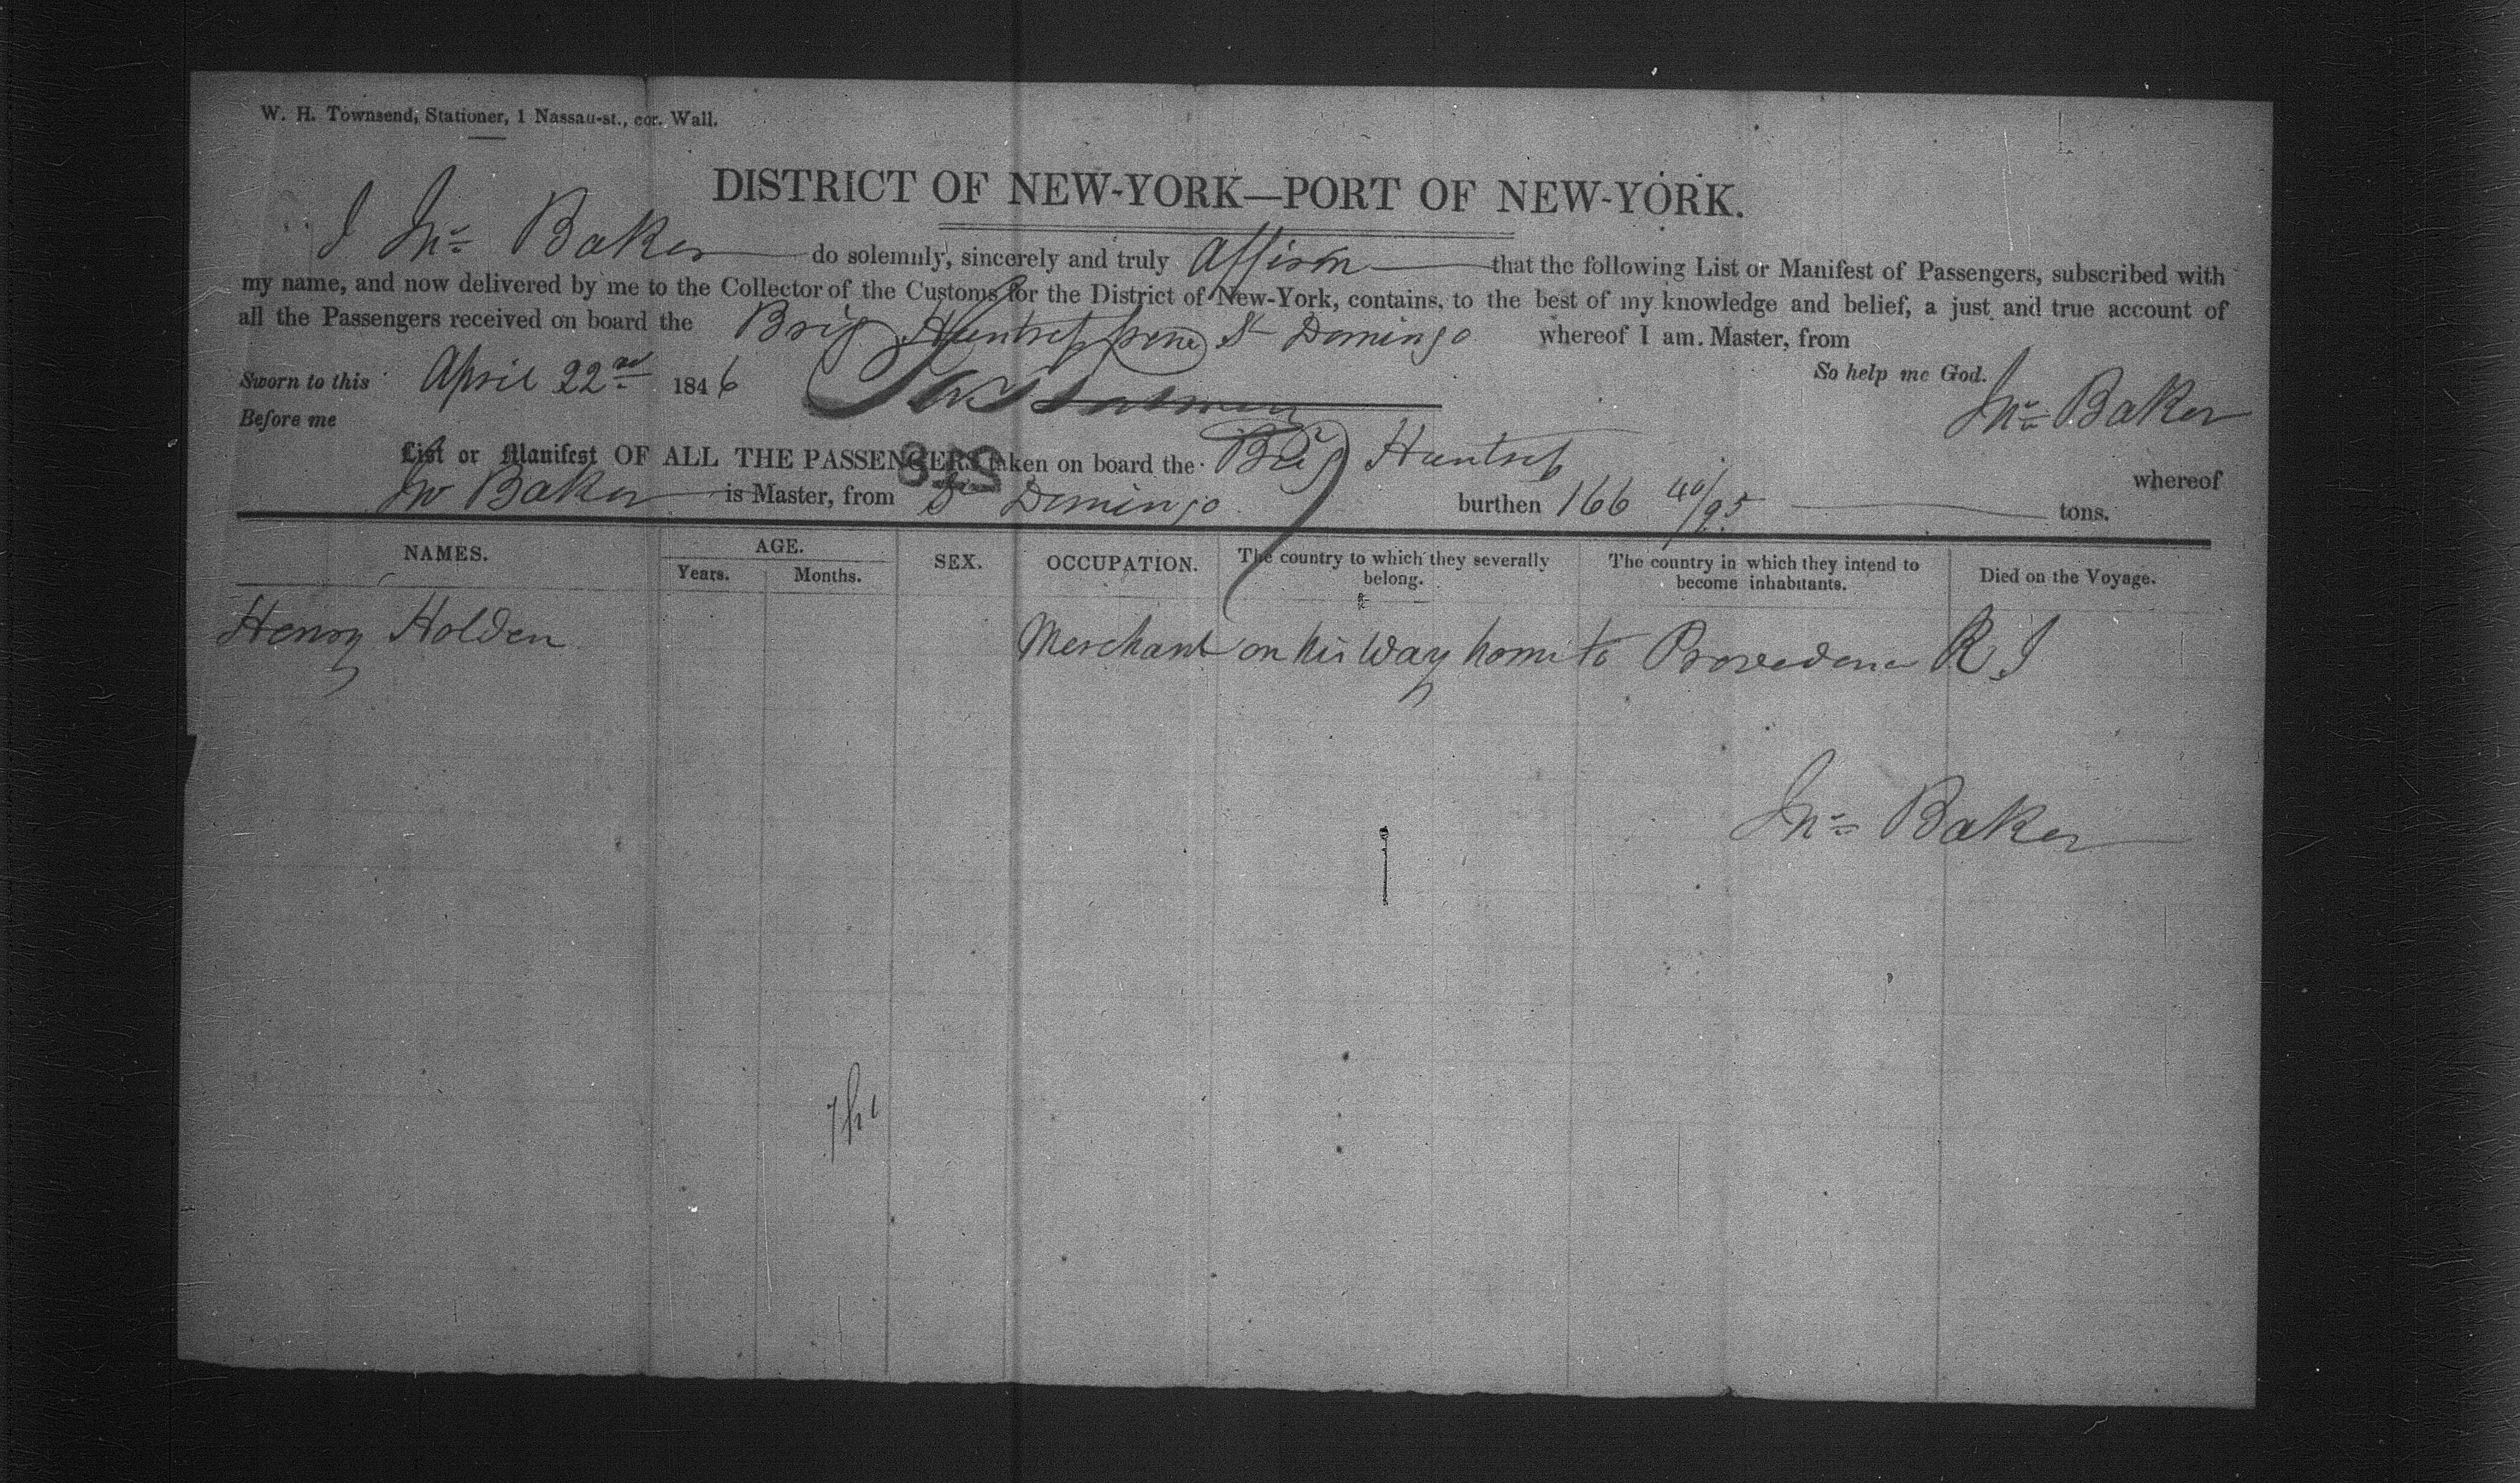 W. H. Townsend, Stationer, 1 Nassau-st., cor. Wall.
DISTRICT OF NEW-YORK—PORT OF NEW-YORK.
I Jno Baker do solemnly, sincerely and truly Affirm that the following List or Manifest of Passengers, subscribed with
my name, and now delivered by me to the Collector of the Customs for the District of New-York, contains, to the best of my knowledge and belief, a just and true account of
all the Passengers received on board the Brig Huntress from St Domingo whereof I am Master, from
So help me God.
Sworn to this April 22nd 1846
Jno Baker
Before me
List or Manifest OF ALL THE PASSENGERS taken on board the Brig Huntress whereof
Jno Baker is Master, from St Domingo burthen 166 40/95 tons.
NAMES. AGE. SEX. OCCUPATION. The country to which they severally belong. The country in which they intend to become inhabitants. Died on the Voyage.
Years. Months.
Henry Holden Merchant on his Way home to Providence R I
Jno Baker